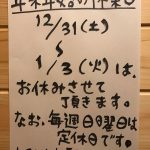 年末年始の休業日
12/31(土)
〜
1/3(火)は、
お休みさせて
頂きます。
なお、毎週日曜日は
定休日です。